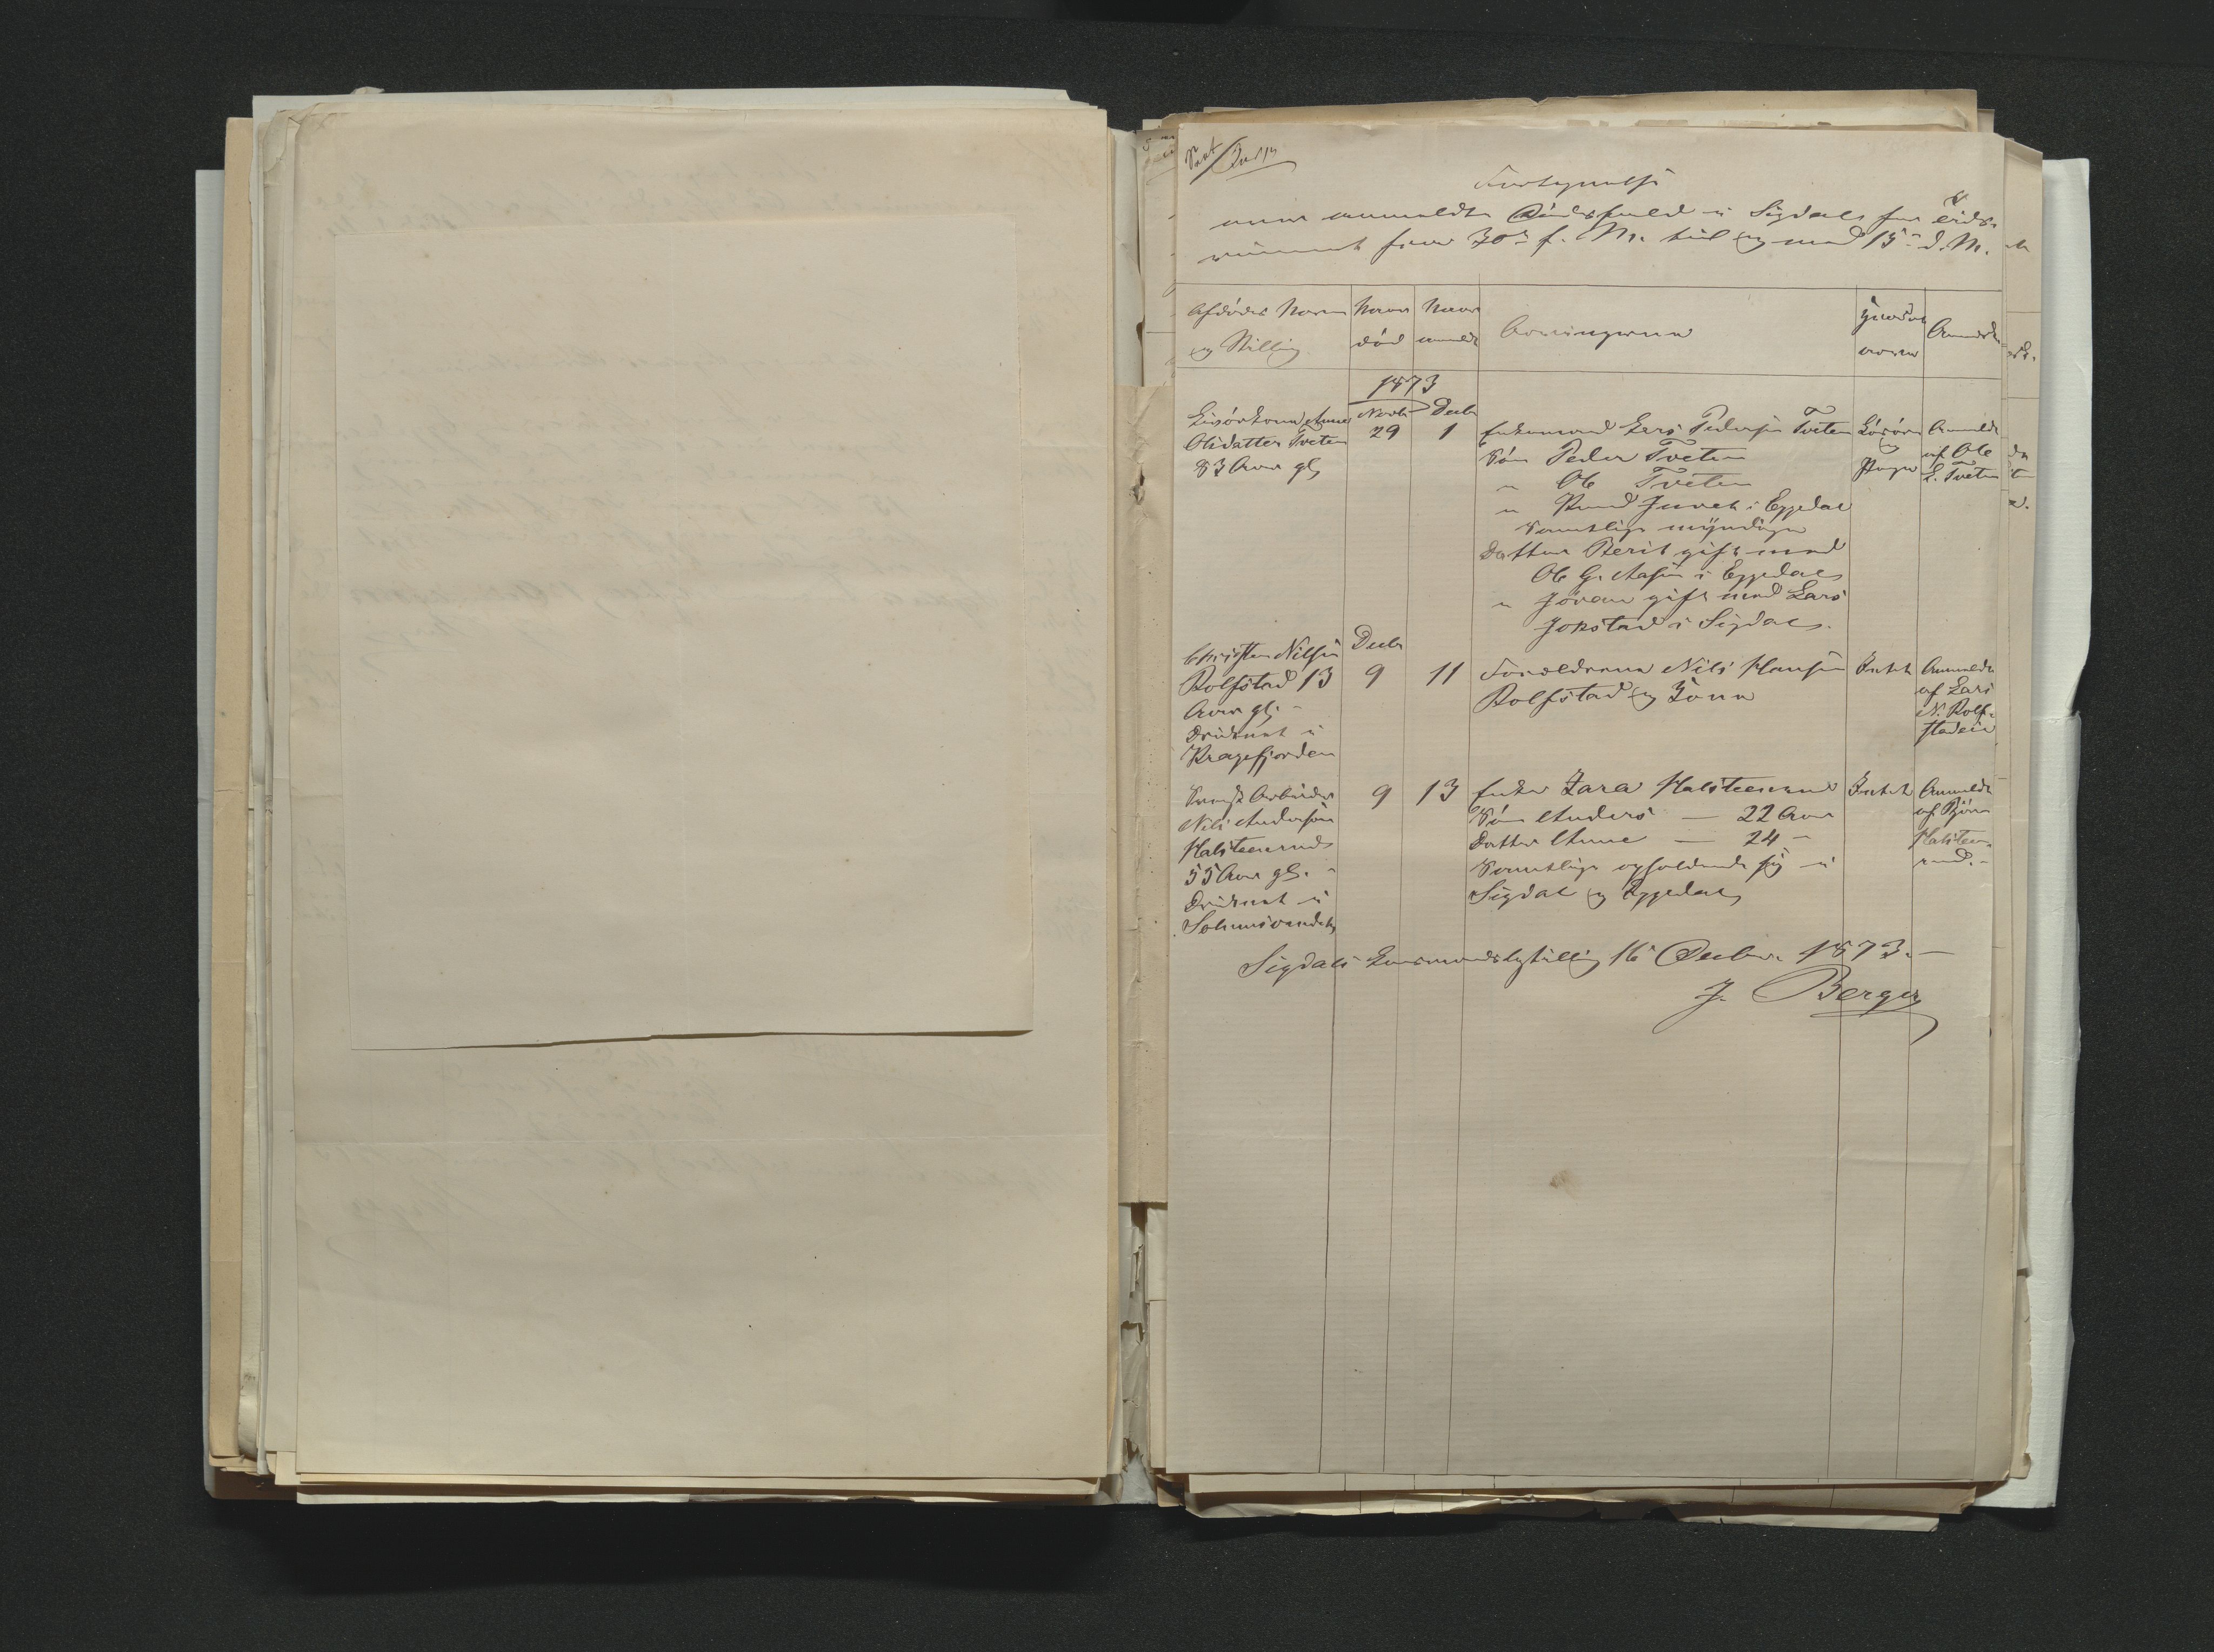 Fortegnelse
over anmeldte Dødsfald i Sigdal for Tids-
rummet fra 30te f. M. til og med 15de d. M.
Afdødes Navn
og Stilling
Naar
død
Naar
anmeldt
Arvingerne
Anmærk
1873
Novbr Decbr
Anne
Olsdatter Tveten
83 Aar gl
29 1
Enkemand Lars Pedersen Tveten
Søn Peder Tveten
" Ole Tveten
" Knud Juvet i Eggedal
Samtlige myndige
Datter Berit gift med
Ole G. Aasen i Eggedal
" Jøran gift med Lars
Jokstad i Sigdal.
Løsøre
og
Penge
Anmeldt
af Ole
L. Tveten
Decbr
Christen Nilsen
Rolfstad 13
Aar gl. -
Druknet i
Kragefjorden
9 11
Forældrene Nils Hansen
Rolfstad og Kone
Intet
Anmeldt
af Lars
N. Rolf-
stadeie
Svensk Arbeider
Nils Andersen
Halsteenrud
55 Aar gl. -
Druknet i
Solumsvandet
9 13
Enke Sara Halsteenrud
Søn Anders — 22 Aar
Datter Anne — 24 -
Samtlige opholdende sig i
Sigdal og Eggedal
Intet
Anmeldt
af Bjørn
Halsteen-
rud. -
Sigdals Lensmandsbestilling 16 Decbr. 1873. —
J. Berger